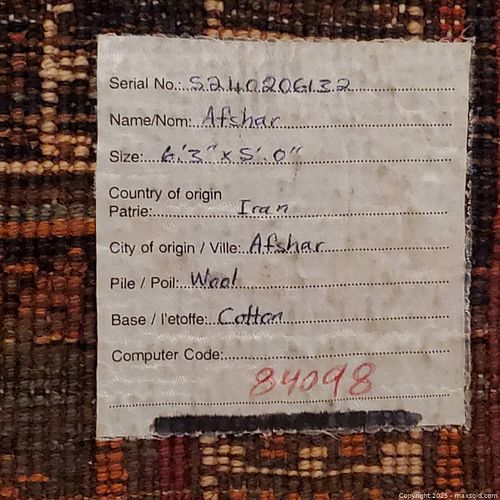 Serial No.: S240206132
Name/Nom: Afshar
Size: 6'.3" x 5'.0"
Country of origin
Patrie: Iran
City of origin / Ville: Afshar
Pile / Poil: Wool
Base / l'etoffe: Cotton
Computer Code:
84098
Copyright 2025 - maxsold.com